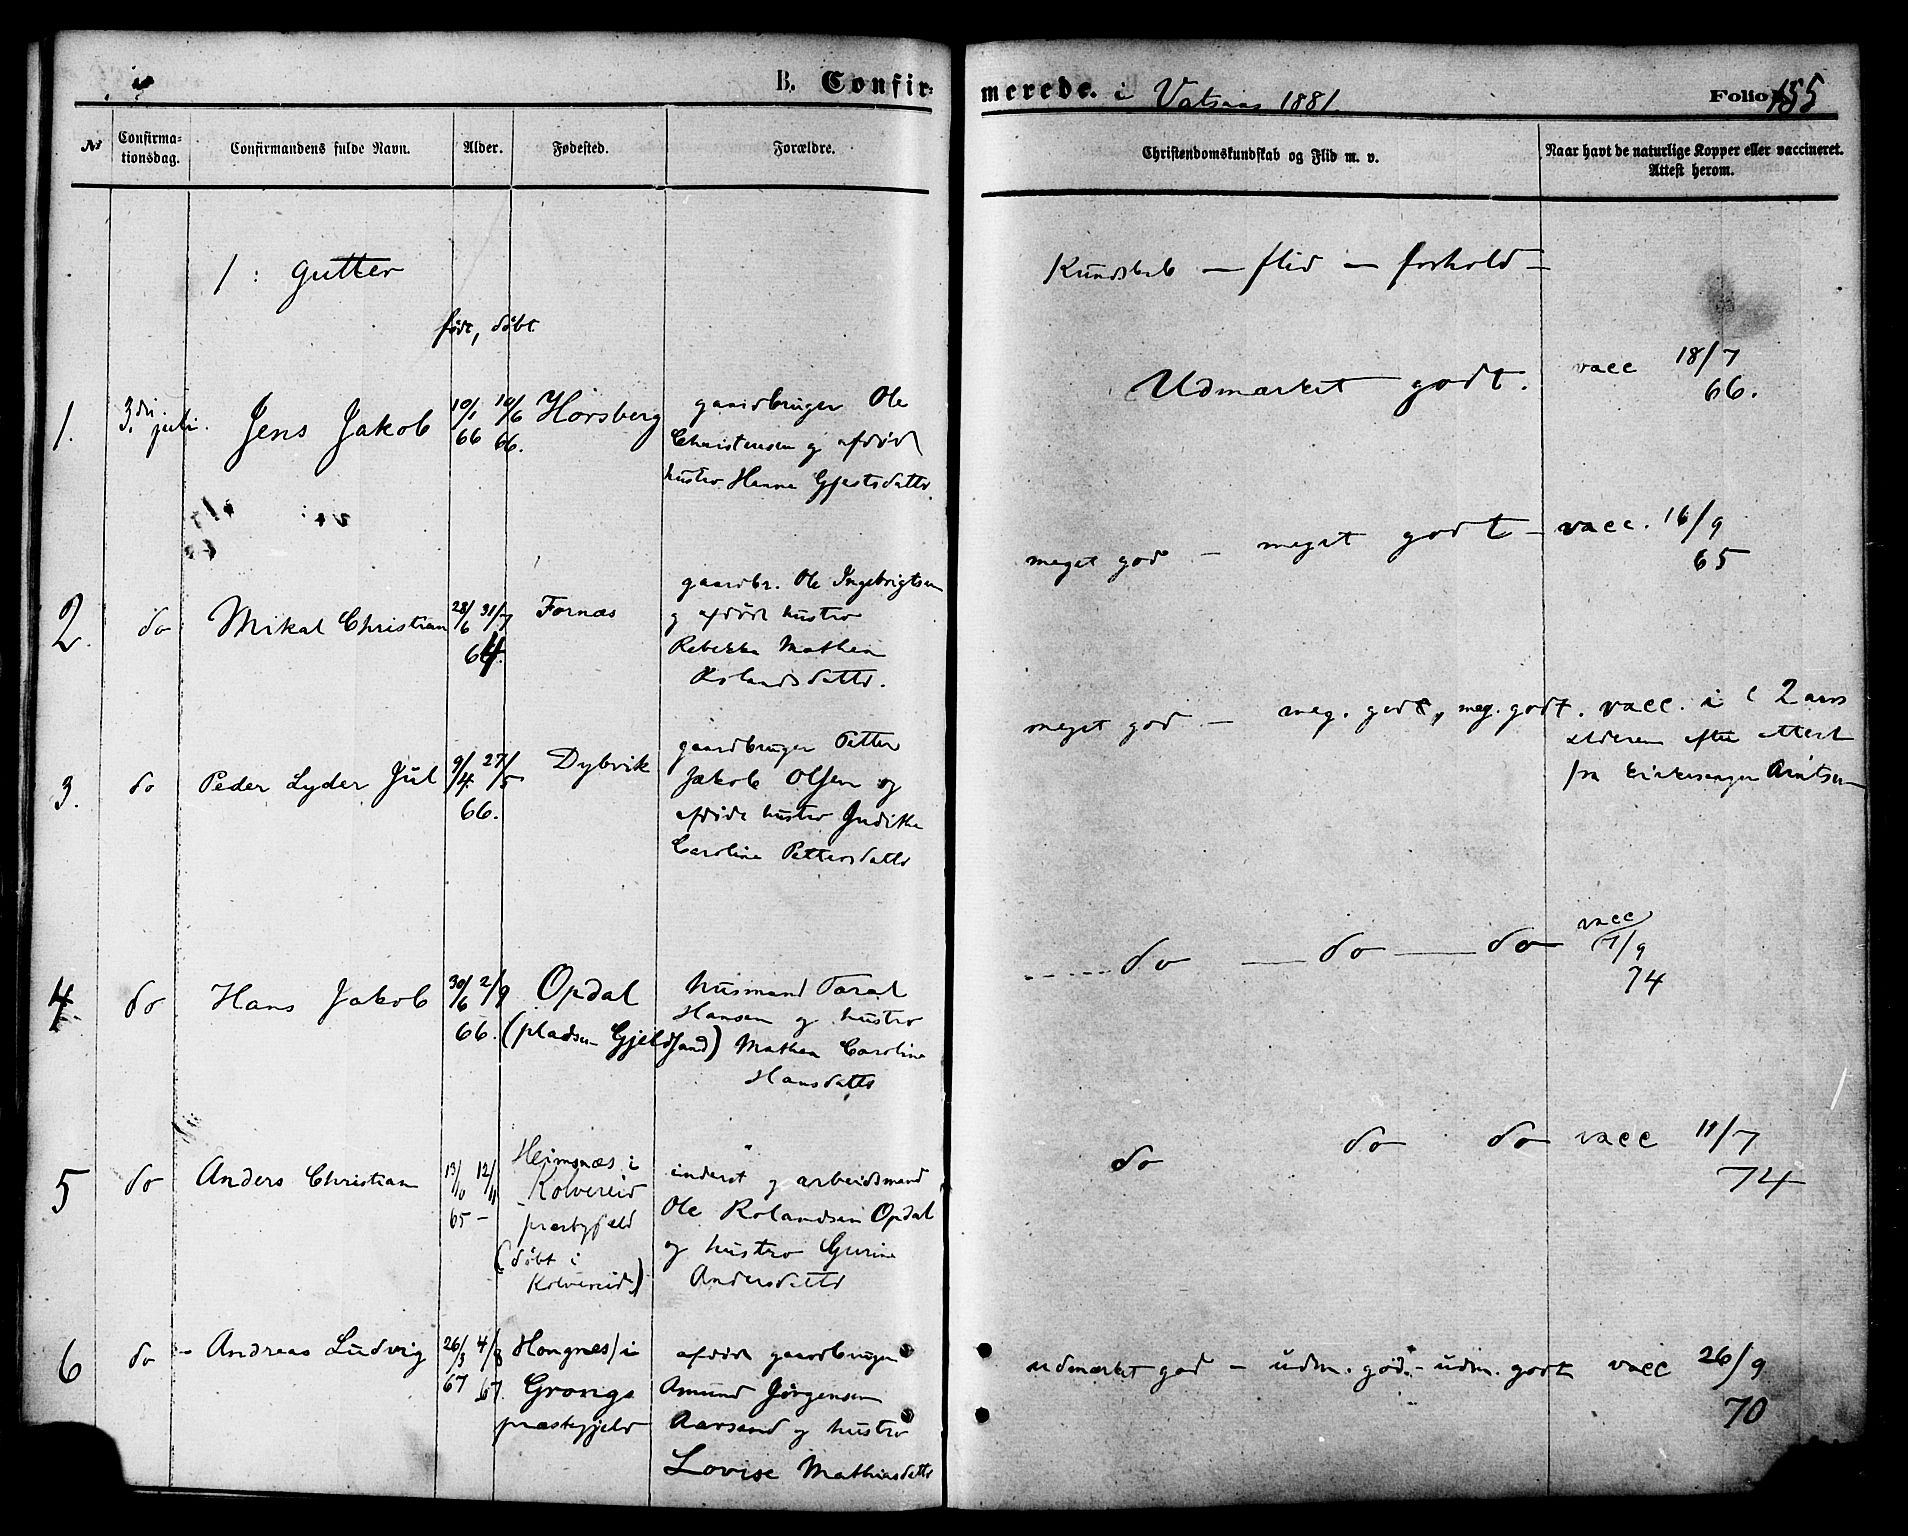 B. Confirmerede. i Vatsaas 1881. Folio 155
No Confirmationsdag. Confirmandens fulde Navn. Alder. Fødested. Forældre. Christendomskundskab og Flid m. v. Naar havt de naturlige Kopper eller vaccineret. Attest herom.
1: gutter
Kundskab — flid — forhold —
født, døbt
1. 3die juli. Jens Jakob 10/1 66 10/6 66. Horsberg
gaardbruger Ole
Christensen og afdød
hustro Hanna Gjertsdattr.
Udmærket godt. vacc 18/7
66.
2. do Mikal Christian 28/6 31/7 64. Fornæs
gaardbr. Ole Ingebrigtsen
og afdøde hustro
Rebekka Mathea
Rolandsdattr.
meget god — meget godt — vacc. 16/9
65
3. do Peder Lyder Jül 9/4 27/5 66. Dybvik
gaardbruger Petter
Jakob Olsen og
afdøde hustro Indikka
Caroline Pettersdattr
meget god — meg. godt, meg. godt. vacc. i 2 aars
alderen efter attest
fra kirkesanger Arntsen
4. do Hans Jakob 30/6 2/9 66. Opdal
(pladsen Gjeldsand)
husmand Taral
Hansen og hustro
Mathea Caroline
Hansdattr
do — do — do vacc
7/9
74
5 do Anders Christian 13/10 12/11 65 —
Heimsnæs i
Kolvereid
præstegjæld
(døbt i
Kolvereid)
inderst og arbeidsmand
Ole Rolandsen Opdal
og hustro Gurine
Andersdattr
do do do vacc 11/7
74
6 do - Andreas Ludvig 26/3 67 4/8 67.
Hongnes i
Grongs
præstegjeld
afdøde gaardbruger
Amund Jørgensen
Aarsand og hustro
Lovise Mathiasdattr
udmærket god — udm. god. - udm. godt vacc 26/9
70